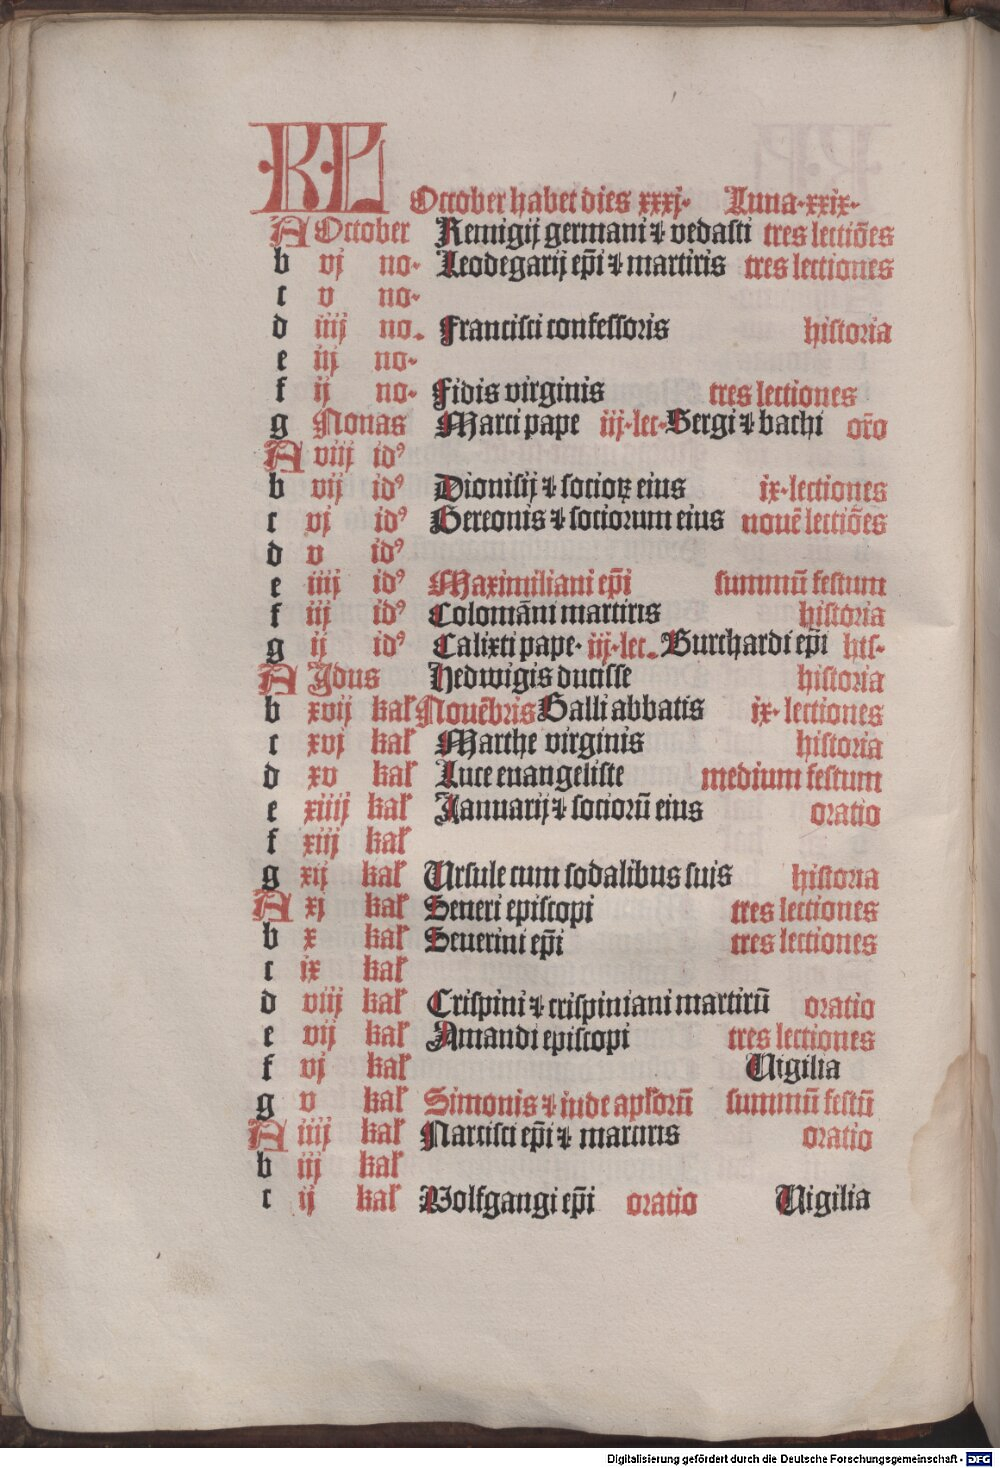 KL
October habet dies xxxj· Luna·xxix·
A October Remigij germani ⁊ vedasti tres lectiōes
b vj no· Leodegarij ep̄i ⁊ martiris tres lectiones
c v no·
d iiij no. Francisci confessoris historia
e iij no·
f ij no· Fidis virginis tres lectiones
g Nonas Marci pape iij·lec·Sergi ⁊ bachi or̄o
A viij idꝰ
b vij idꝰ Dionisij ⁊ socioꝝ eius ix·lectiones
c vj idꝰ Gereonis ⁊ sociorum eius nouē lectiōes
d v idꝰ
e iiij idꝰ Maximiliani ep̄i summū festum
f iij idꝰ Colomāni martiris historia
g ij idꝰ Calixti pape· iij·lec. Burchardi ep̄i his·
A Jdus Hedwigis ducisse historia
b xvij kal̄ Nouēbris Galli abbatis ix· lectiones
c xvj kal̄ Marthe virginis historia
d xv kal̄ Luce euangeliste medium festum
e xiiij kal̄ Januarij ⁊ sociorū eius oratio
f xiij kal̄
g xij kal̄ Ursule cum sodalibus suis historia
A xj kal̄ Seueri episcopi tres lectiones
b x kal̄ Seuerini ep̄i tres lectiones
c ix kal̄
d viij kal̄ Crispini ⁊ crispiniani martirū oratio
e vij kal̄ Amandi episcopi tres lectiones
f vj kal̄ Uigilia
g v kal̄ Simonis ⁊ iude apl̄orū summū festū
A iiij kal̄ Narcisci ep̄i ⁊ martiris oratio
b iij kal̄
c ij kal̄ Wolfgangi ep̄i oratio Uigilia
Digitalisierung gefördert durch die Deutsche Forschungsgemeinschaft - DFG